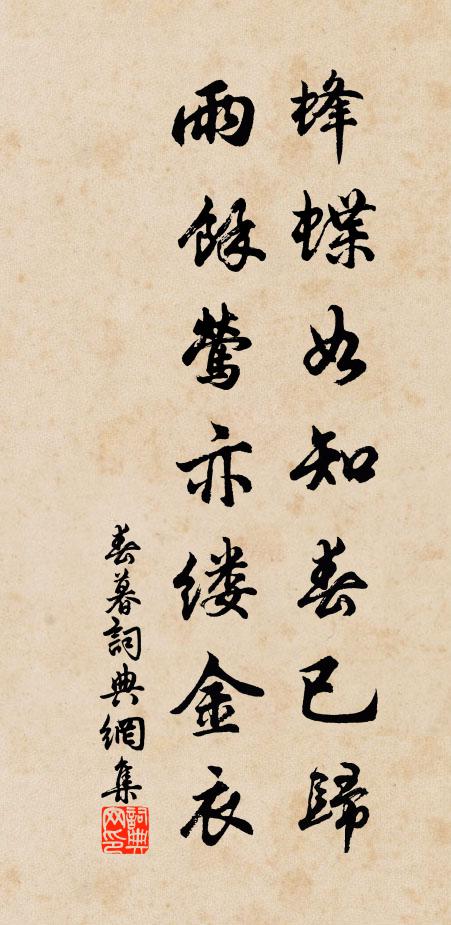 蜂蝶如知春已歸
雨餘鶯亦缕金衣
春暮詞典網集
詞典網印